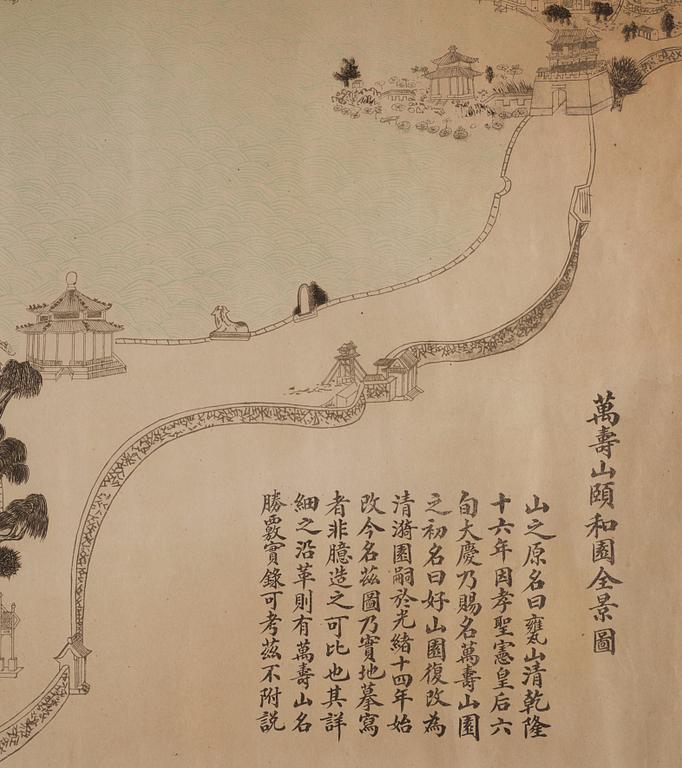 萬壽山頤和園全景圖
山之原名曰甕山清乾隆
十六年因孝聖憲皇后六
旬大慶乃賜名萬壽山園
之初名曰好山園復改為
清漪園嗣於光緒十四年始
改今名茲圖乃實地摹寫
者非臆造之可比也其詳
細之沿革則有萬壽山名
勝覈實錄可考茲不附説